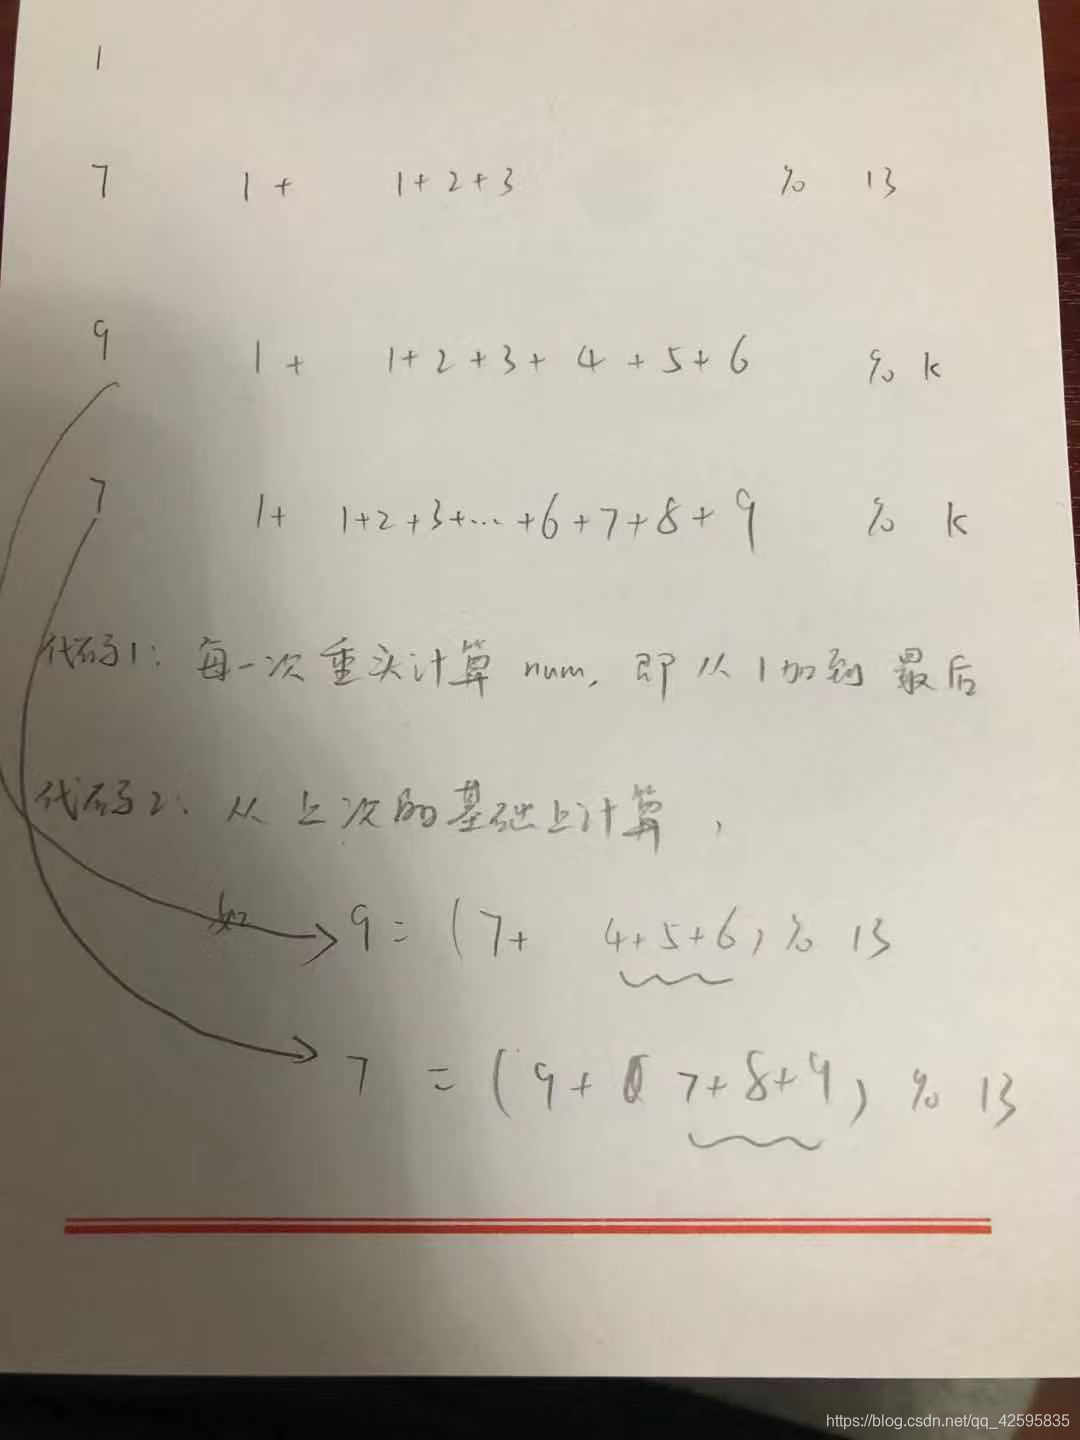 1
7 1 + 1 + 2 + 3 % 13
9 1 + 1 + 2 + 3 + 4 + 5 + 6 % k
7 1 + 1 + 2 + 3 + ... + 6 + 7 + 8 + 9 % k
代码1: 每一次重头计算 num, 即从1加到最后
代码2: 从上次的基础上计算,
如 9 = (7 + 4 + 5 + 6) % 13
7 = (9 + 7 + 8 + 9) % 13
https://blog.csdn.net/qq_42595835